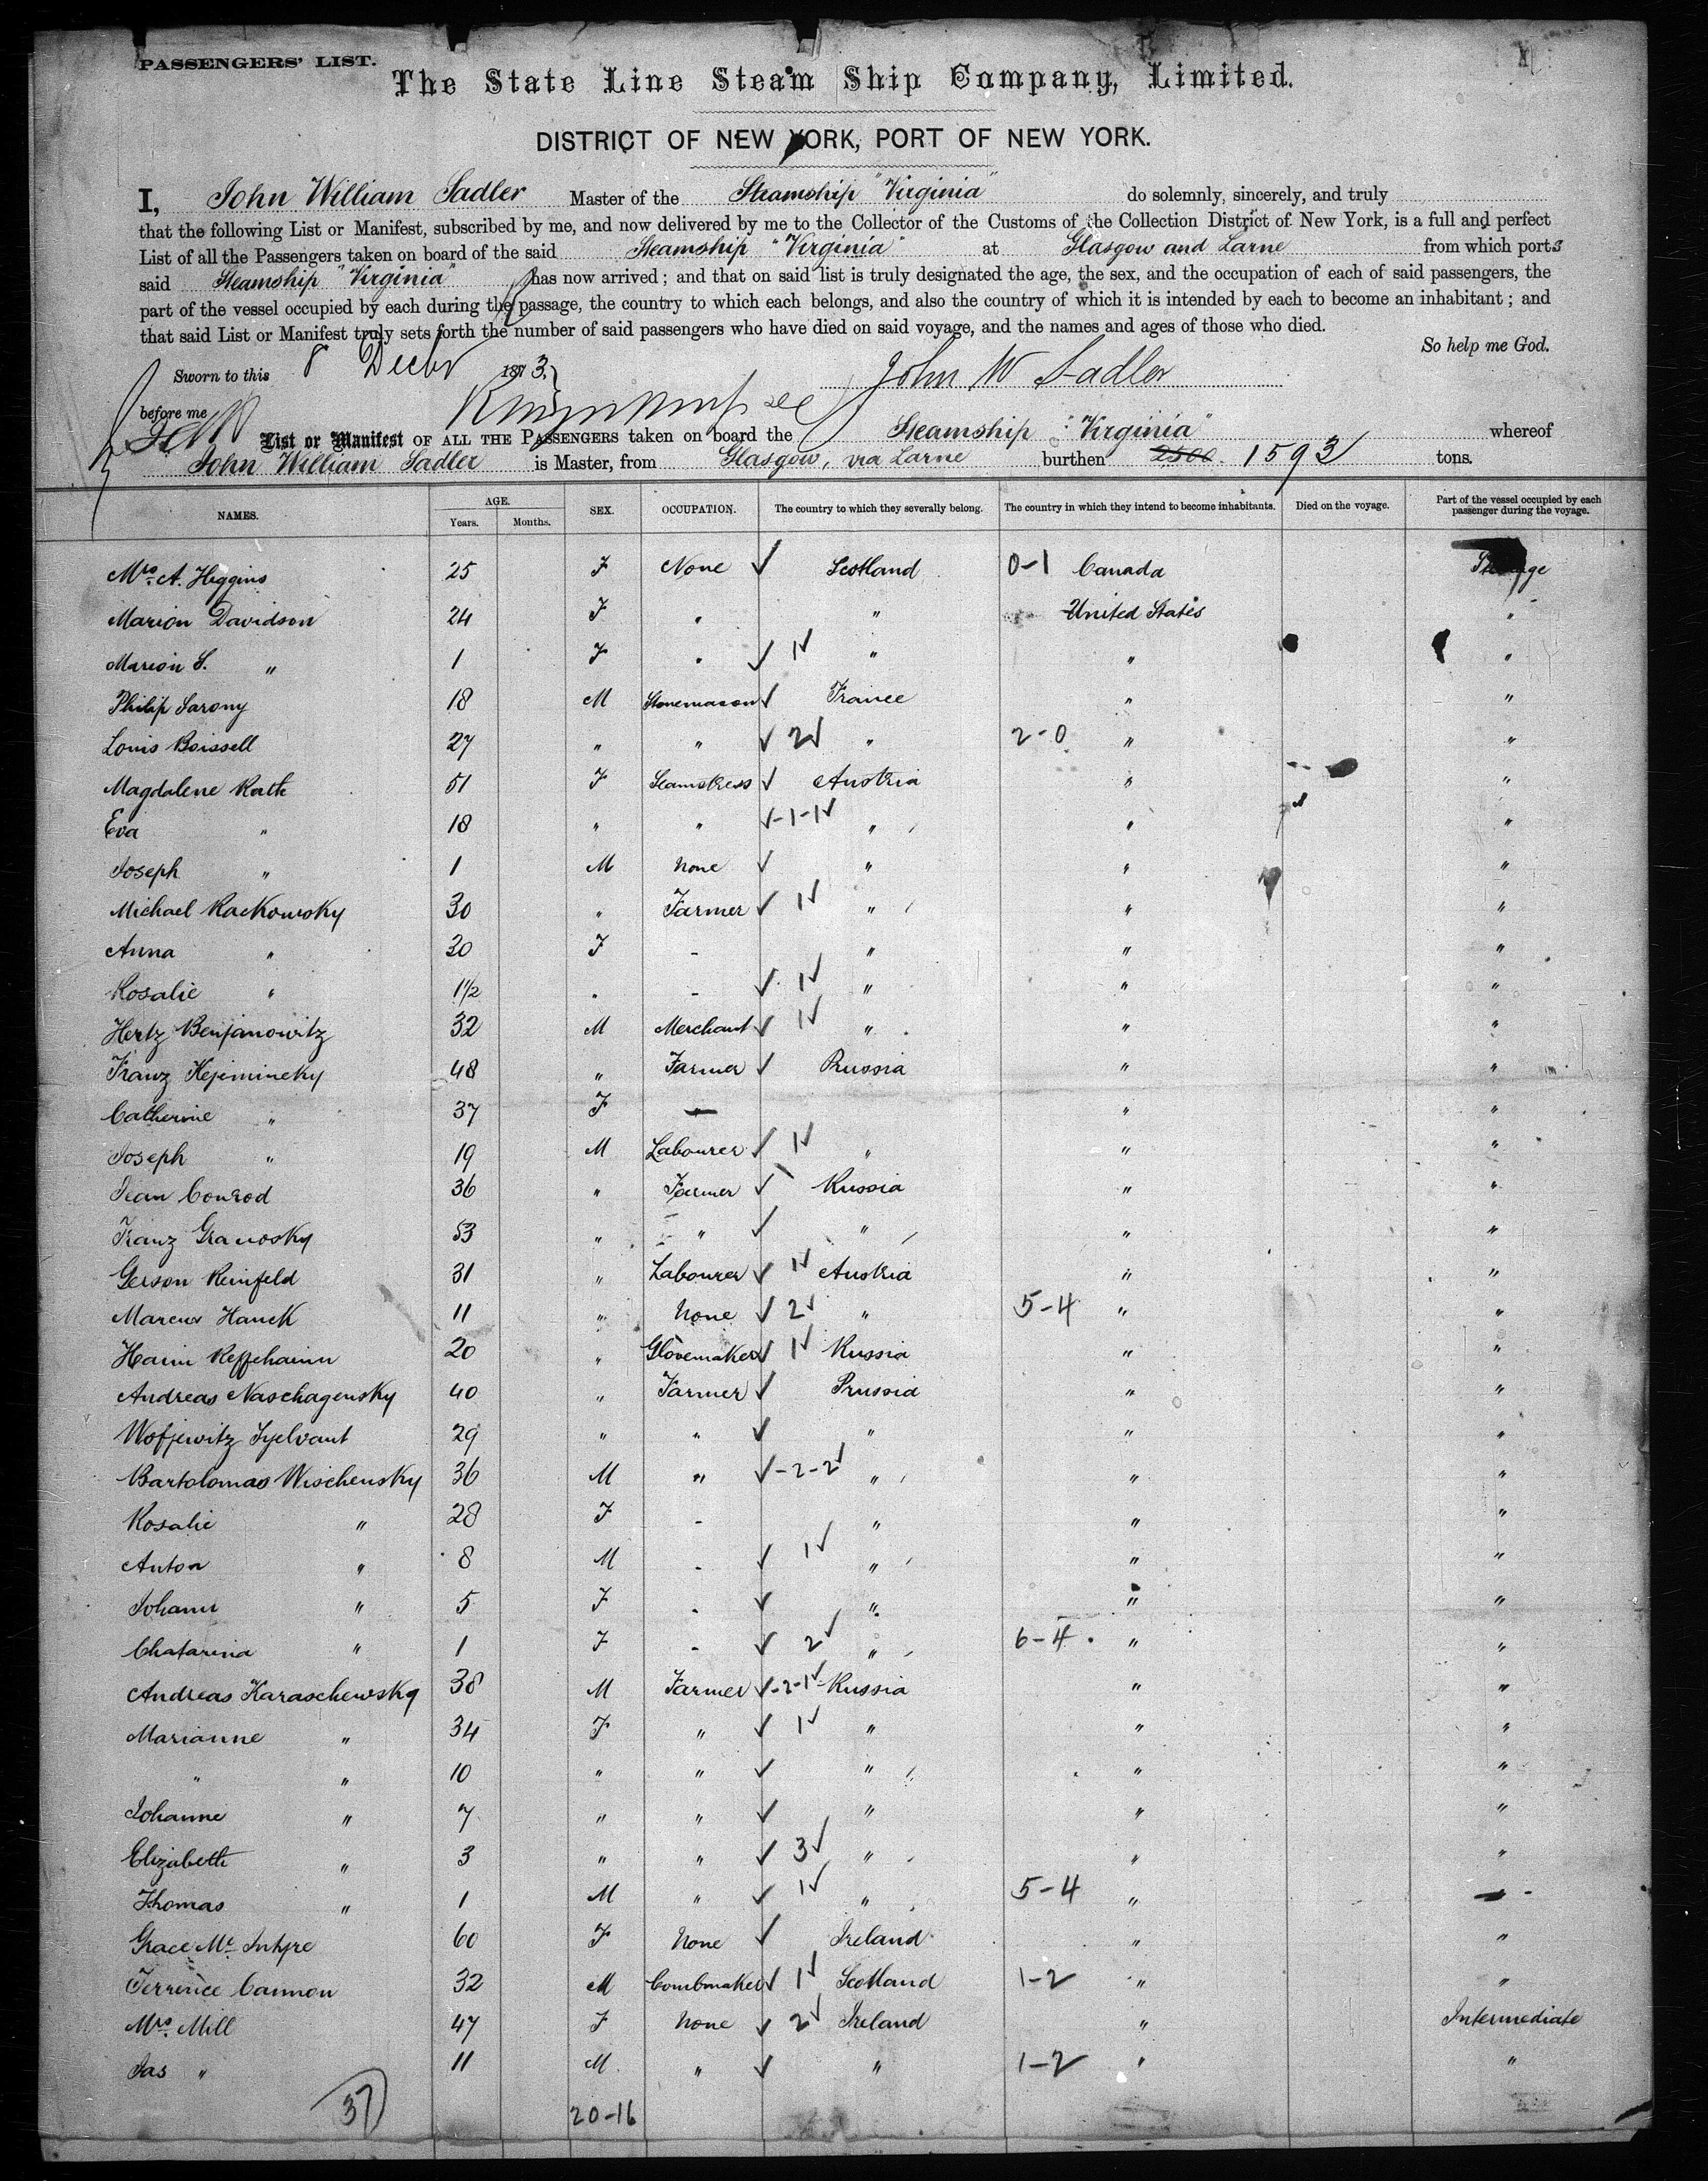 PASSENGERS' LIST.
The State Line Steam Ship Company, Limited.
DISTRICT OF NEW YORK, PORT OF NEW YORK.
I, John William Sadler Master of the Steamship "Virginia" do solemnly, sincerely, and truly
that the following List or Manifest, subscribed by me, and now delivered by me to the Collector of the Customs of the Collection District of New York, is a full and perfect
List of all the Passengers taken on board of the said Steamship "Virginia" at Glasgow and Larne from which ports
said Steamship "Virginia" has now arrived; and that on said list is truly designated the age, the sex, and the occupation of each of said passengers, the
part of the vessel occupied by each during the passage, the country to which each belongs, and also the country of which it is intended by each to become an inhabitant; and
that said List or Manifest truly sets forth the number of said passengers who have died on said voyage, and the names and ages of those who died.
So help me God.
Sworn to this 8 Decbr 1873. John W Sadler
before me
List or Manifest OF ALL THE PASSENGERS taken on board the Steamship "Virginia" whereof
John William Sadler is Master, from Glasgow, via Larne burthen 2500 1593 tons.
NAMES. AGE. Years. Months. SEX. OCCUPATION. The country to which they severally belong. The country in which they intend to become inhabitants. Died on the voyage. Part of the vessel occupied by each passenger during the voyage.
Mrs. A. Higgins 25 F None ✓ Scotland 0-1 Canada Steerage
Marion Davidson 24 F " " United States "
Marion S. " 1 F " ✓ 1✓ " " "
Philip Sarony 18 M Stonemason ✓ France " "
Louis Boissell 27 " " ✓ 2✓ " 2-0 " "
Magdalene Rath 51 F Seamstress ✓ Austria " "
Eva " 18 " " ✓-1-1✓ " " "
Joseph " 1 M None ✓ " " "
Michael Rackowsky 30 " Farmer ✓ 1✓ " " "
Anna " 30 F - " " "
Rosalie " 1½ " - ✓ 1✓ " " "
Hertz Benjanowitz 32 M Merchant ✓ 1✓ " " "
Franz Kejemincky 48 " Farmer ✓ Prussia " "
Catherine " 37 F — " "
Joseph " 19 M Labourer ✓ 1✓ " " "
Jean Conrod 36 " Farmer ✓ Russia " "
Franz Granosky 53 " " ✓ " " "
Gerson Reinfeld 31 " Labourer ✓ 1✓ Austria " "
Marcus Hauck 11 " None ✓ 2✓ " 5-4 " "
Haim Reffehaim 20 " Glovemaker ✓ 1✓ Russia " "
Andreas Naschagensky 40 " Farmer ✓ Prussia " "
Wofjewitz Syelvant 29 " " ✓ " " "
Bartolomas Wischensky 36 M " ✓-2-2✓ " " "
Rosalie " 28 F - " " "
Anton " 8 M - ✓ 1✓ " " "
Johann " 5 F - ✓ " " "
Chatarina " 1 F - ✓ 2✓ " 6-4 " "
Andreas Karaschewsky 38 M Farmer ✓-2-1✓ Russia " "
Marianne " 34 F " ✓ 1✓ " " "
" " 10 " " ✓ " " "
Johanne " 7 " " ✓ " " "
Elizabeth " 3 " " ✓ 3✓ " " "
Thomas " 1 M " ✓ 1✓ " 5-4 " —
Grace Mc Intyre 60 F None ✓ Ireland " "
Terrence Cannon 32 M Combmaker ✓ 1✓ Scotland 1-2 " "
Mrs. Mill 47 F None ✓ 2✓ Ireland " Intermediate
Jas " 11 M " ✓ " 1-2 " "
37 20-16